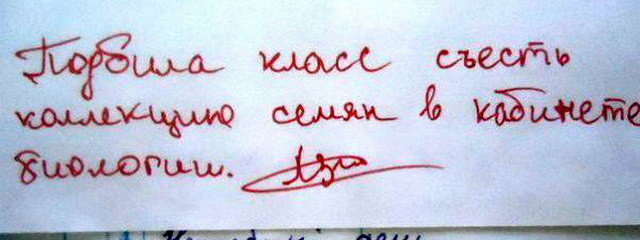 Подбила класс съесть
коллекцию семян в кабинете
биологии.